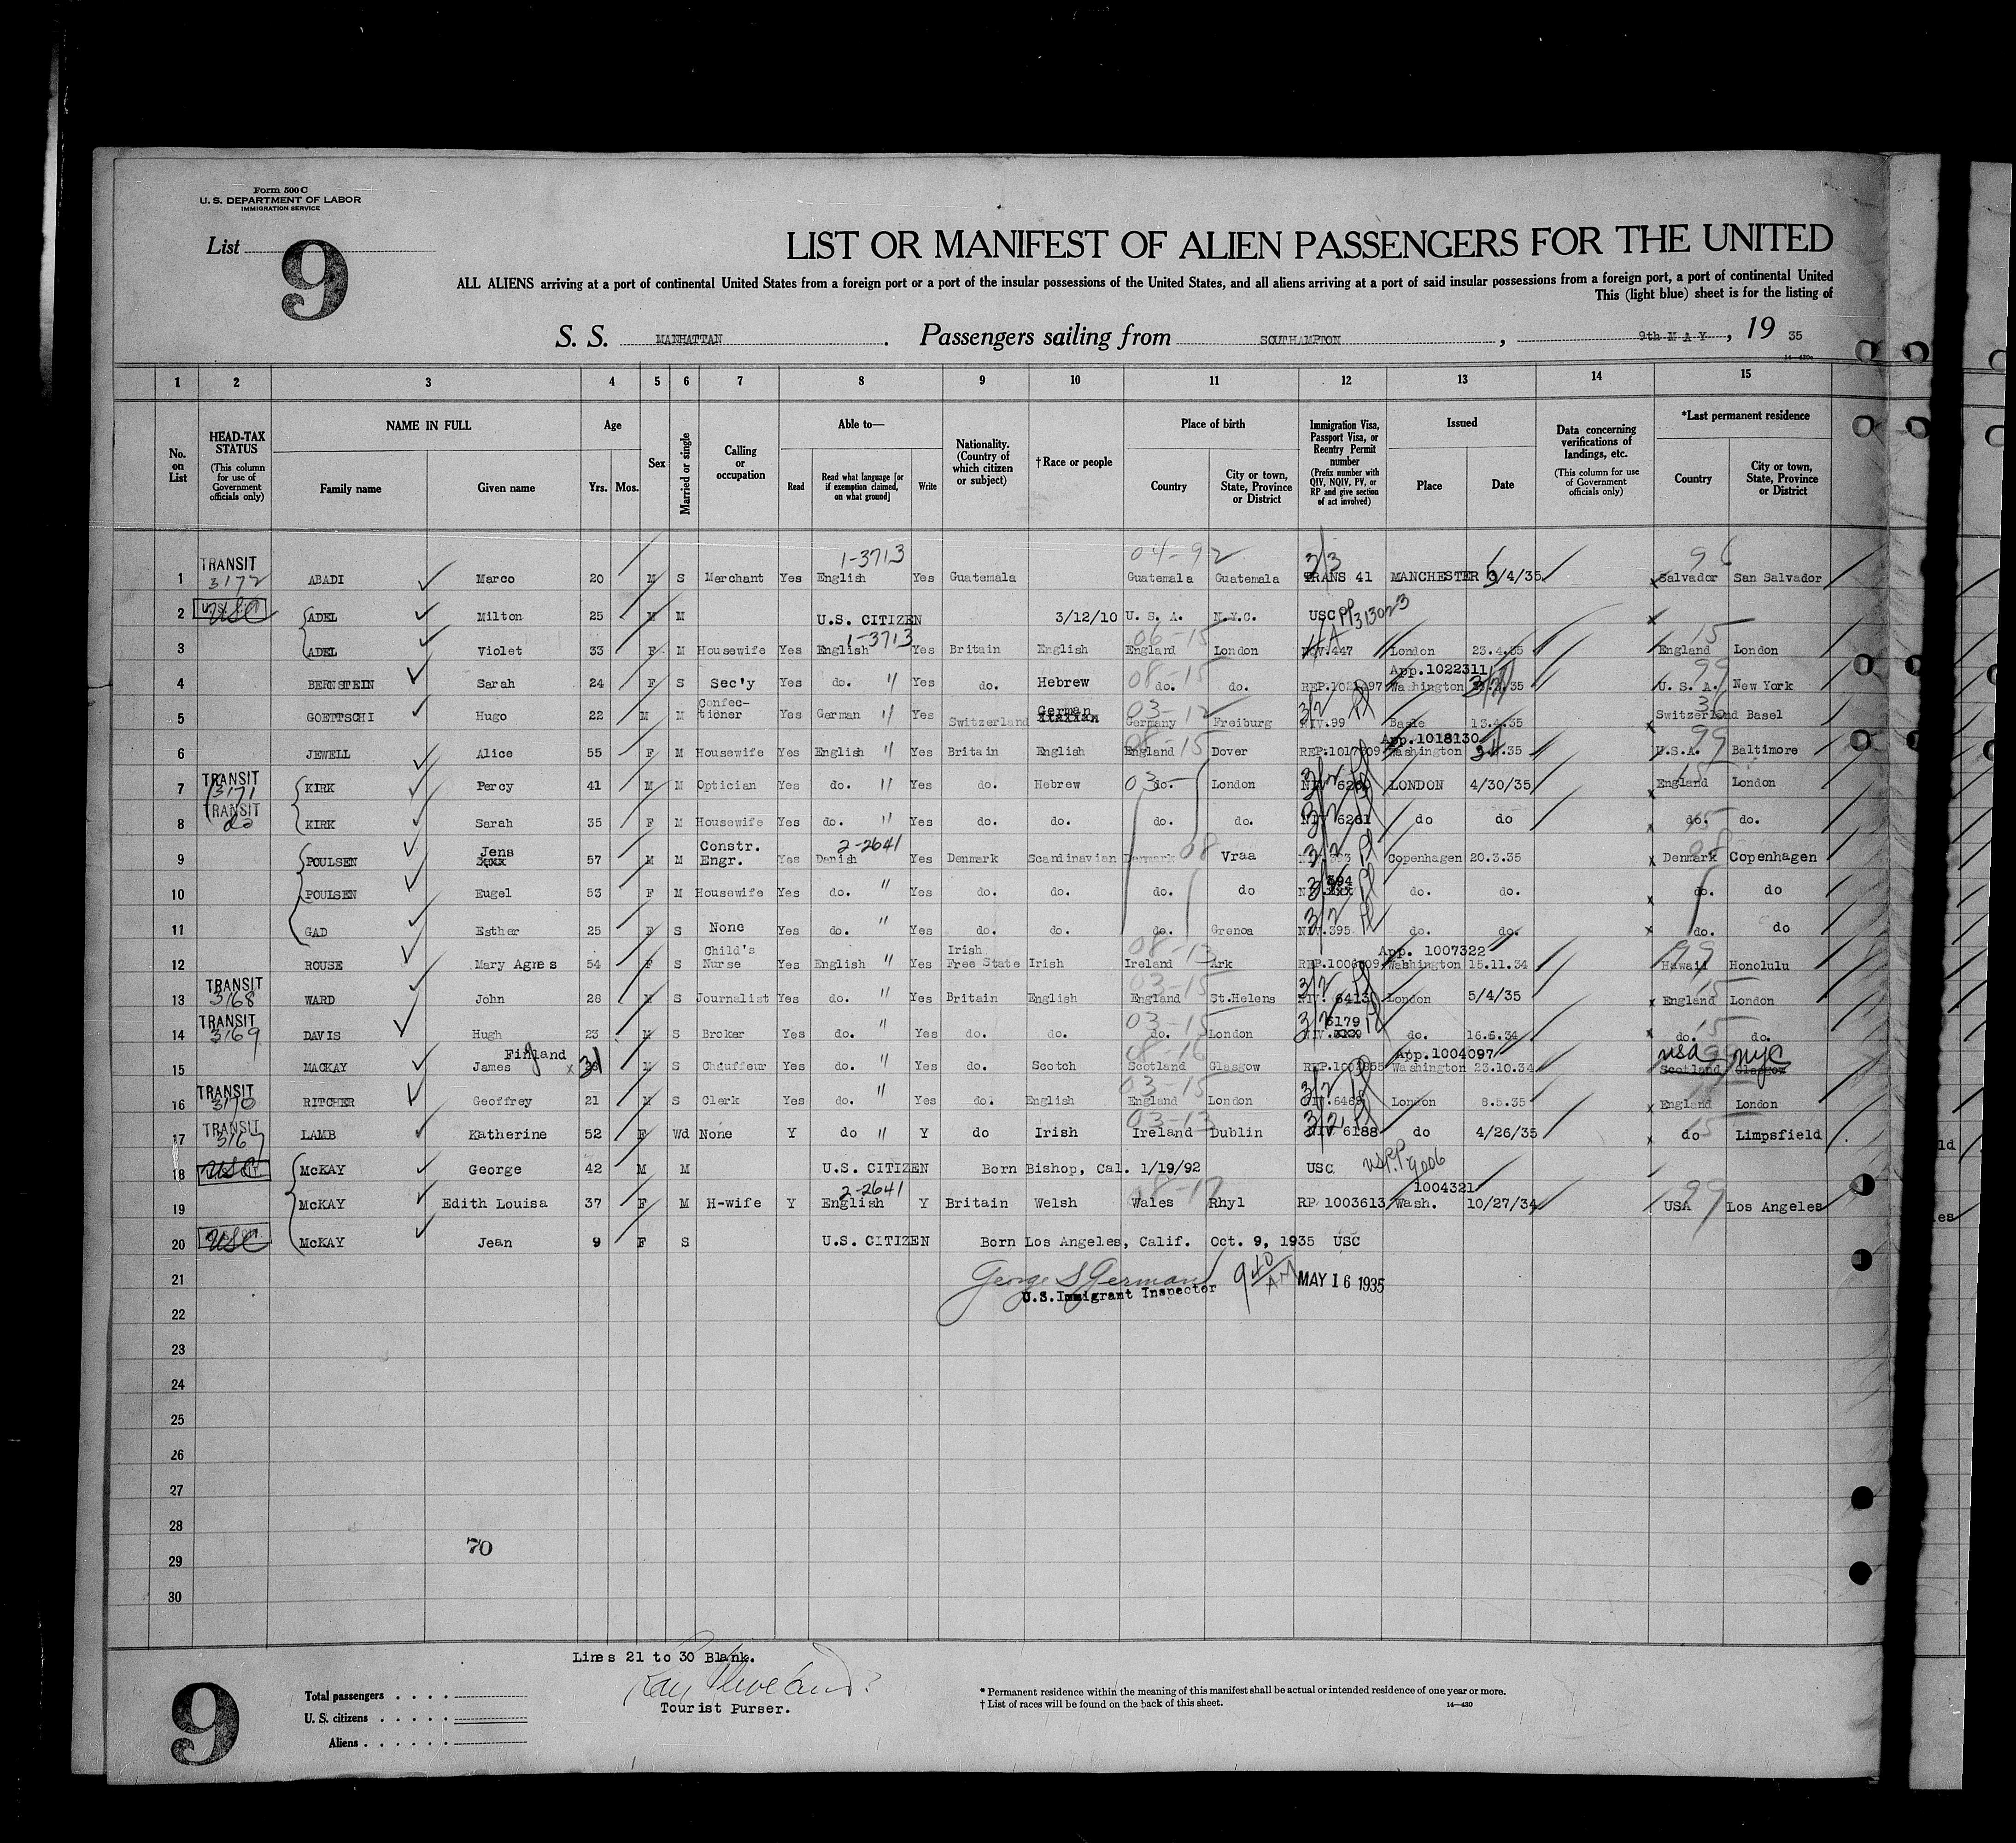 Form 500 C
U. S. DEPARTMENT OF LABOR
IMMIGRATION SERVICE
List 9
LIST OR MANIFEST OF ALIEN PASSENGERS FOR THE UNITED
ALL ALIENS arriving at a port of continental United States from a foreign port or a port of the insular possessions of the United States, and all aliens arriving at a port of said insular possessions from a foreign port, a port of continental United
This (light blue) sheet is for the listing of
S. S. MANHATTAN. Passengers sailing from SOUTHAMPTON, 9th MAY, 19 35
14—430a
1 2 3 4 5 6 7 8 9 10 11 12 13 14 15
No. on List
HEAD-TAX STATUS (This column for use of Government officials only)
NAME IN FULL Family name Given name
Age Yrs. Mos.
Sex
Married or single
Calling or occupation
Able to— Read Read what language [or if exemption claimed, on what ground] Write
Nationality. (Country of which citizen or subject)
†Race or people
Place of birth Country City or town, State, Province or District
Immigration Visa, Passport Visa, or Reentry Permit number (Prefix number with QIV, NQIV, PV, or RP and give section of act involved)
Issued Place Date
Data concerning verifications of landings, etc. (This column for use of Government officials only)
*Last permanent residence Country City or town, State, Province or District
TRANSIT 1-3713 04-92 3/3 96
1 3172 ABADI Marco 20 M S Merchant Yes English Yes Guatemala Guatemala Guatemala TRANS 41 MANCHESTER 3/4/35 x Salvador San Salvador
2 USC ADEL Milton 25 M M U.S. CITIZEN 3/12/10 U. S. A. N.Y.C. USC PP313023 x
1-3713 06-15 15
3 ADEL Violet 33 F M Housewife Yes English Yes Britain English England London 447 London 23.4.35 England London
App.1022311
4 BERNSTEIN Sarah 24 F S Sec'y Yes do. " Yes do. Hebrew 08-15 do. do. Washington U. S. A. 99 New York
5 GOETTSCHI Hugo 22 M M Confec-tioner Yes German " Yes Switzerland German 03-12 Germany Freiburg NIV.99 Basle 13.4.35 x Switzerland Basel
App.1018130
6 JEWELL Alice 55 F M Housewife Yes English " Yes Britain English 08-15 England Dover Washington U.S.A. 99 Baltimore
7 TRANSIT 3171 KIRK Percy 41 M M Optician Yes do. " Yes do. Hebrew 03 do. London LONDON 4/30/35 x England London
8 TRANSIT do KIRK Sarah 35 F M Housewife Yes do. " Yes do. do. do. do. NIV 6261 do do x do. do.
2-2641
9 POULSEN Jens 57 M M Constr. Engr. Yes Danish Yes Denmark Scandinavian Denmark 08 Vraa Copenhagen 20.3.35 x Denmark Copenhagen
10 POULSEN Eugel 53 F M Housewife Yes do. " Yes do. do. do. do 394 do. do. x do. do
11 GAD Esther 25 F S None Yes do. " Yes do. do. do. Grenoa NIV.395 do. do. x do. do
App. 1007322
12 ROUSE Mary Agnes 54 F S Child's Nurse Yes English " Yes Irish Free State Irish 08-13 Ireland Ark Washington 15.11.34 Hawaii 99 Honolulu
13 TRANSIT 3168 WARD John 26 M S Journalist Yes do. " Yes Britain English 03-15 England St.Helens NIV. 6413 London 5/4/35 x England London
14 TRANSIT 3169 DAVIS Hugh 23 M S Broker Yes do. " Yes do. do. 03-15 do. London NIV. 6179 do. 16.5.34 x do. do.
App.1004097
15 MACKAY James Finland x 31 M S Chauffeur Yes do. " Yes do. Scotch Scotland Glasgow Washington 23.10.34 usa nyc Scotland Glasgow
16 TRANSIT 3170 RITCHER Geoffrey 21 M S Clerk Yes do. " Yes do. English 03-15 England London London 8.5.35 x England London
17 TRANSIT 3167 LAMB Katherine 52 F Wd None Y do " Y do Irish 03-13 Ireland Dublin NIV 6188 do 4/26/35 x do Limpsfield
18 USC McKAY George 42 M M U.S. CITIZEN Born Bishop, Cal. 1/19/92 USC
2-2641 1004321
19 McKAY Edith Louisa 37 F M H-wife Y English Y Britain Welsh Wales Rhyl RP 1003613 Wash. 10/27/34 USA 99 Los Angeles
20 USC McKAY Jean 9 F S U.S. CITIZEN Born Los Angeles, Calif. Oct. 9, 1935 USC
George S German 9 40 AM MAY 16 1935
U.S.Immigrant Inspector
21
22
23
24
25
26
27
28
70
29
30
Lines 21 to 30 Blank.
Tourist Purser.
9
Total passengers
U. S. citizens
Aliens
* Permanent residence within the meaning of this manifest shall be actual or intended residence of one year or more.
† List of races will be found on the back of this sheet.
14—430